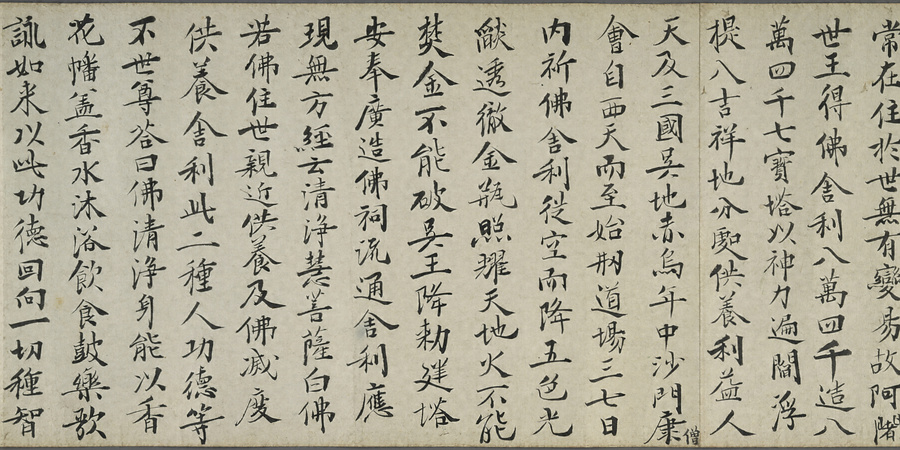 常在住於世無有變易故阿闍
世王得佛舍利八萬四千造八
萬四千七寶塔以神力遍閻浮
提八吉祥地分配供養利益人
天及三國吳地赤烏年中沙門康僧
會自西天而至始刱道場三七日
内祈佛舍利從空而降五色光
燄透徹金瓶照耀天地火不能
焚金不能破吳王降勅建塔
安奉廣造佛祠流通舍利應
現無方經云清淨慧菩薩白佛
若佛住世親近供養及佛滅度
供養舍利此二種人功德等
不世尊答曰佛清淨身能以香
花幡盖香水沐浴飲食鼓樂歌
詠如来以此功德回向一切種智